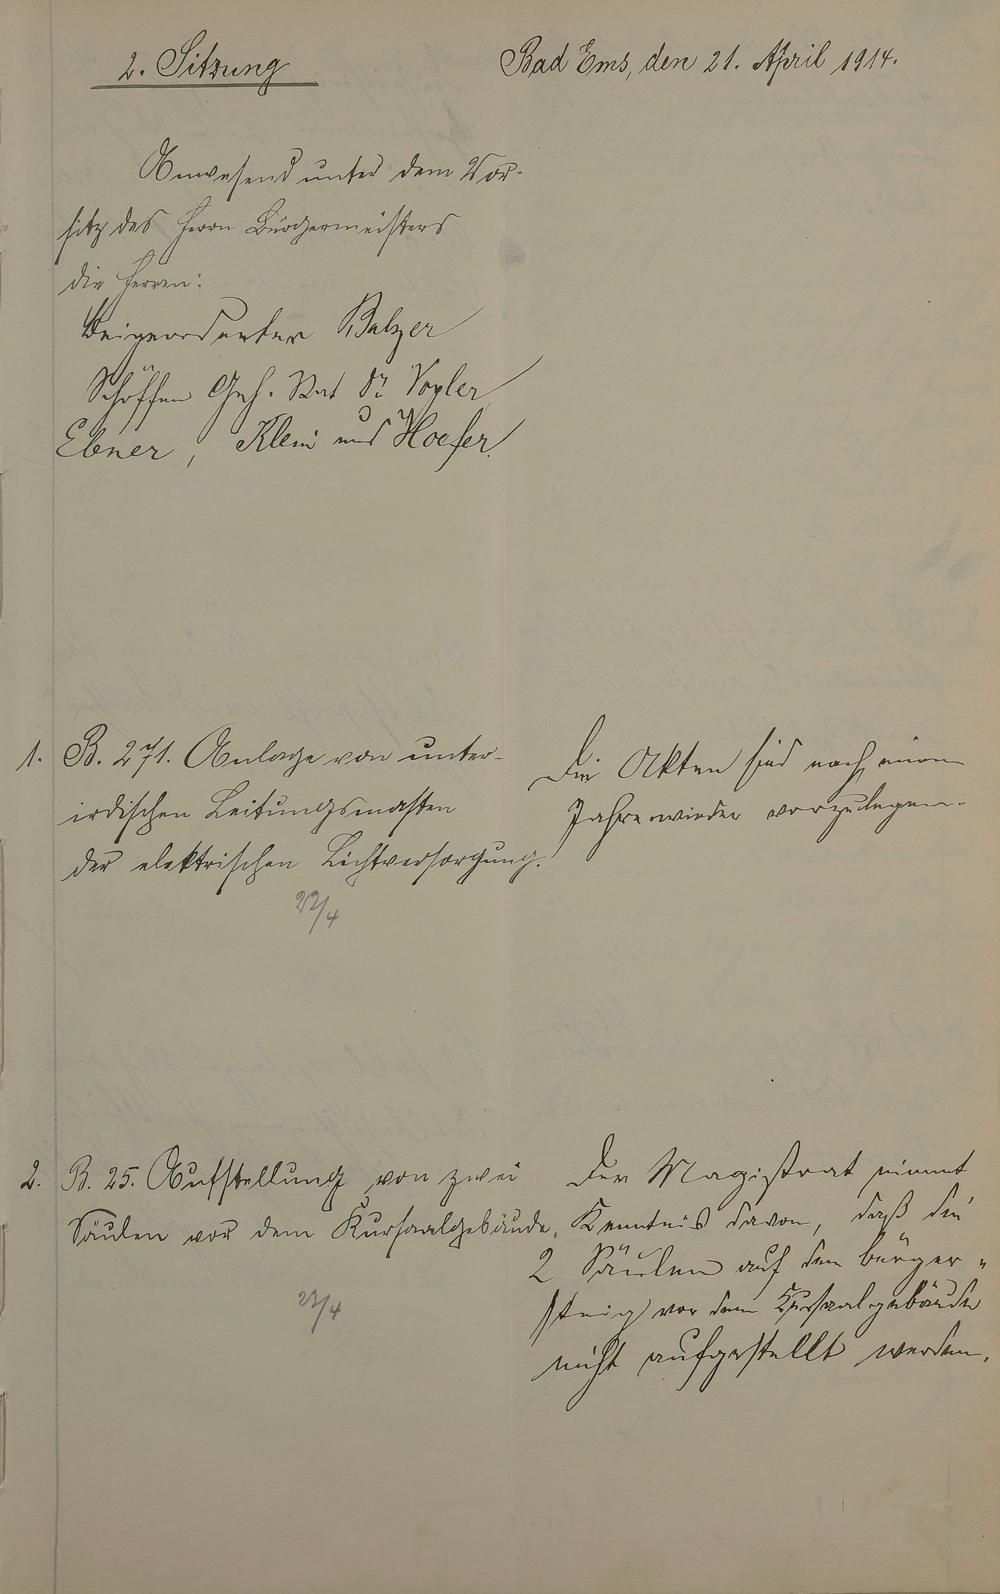 2. Sitzung
Bad Ems, den 21. April 1914.
Anwesend unter dem Vor-
sitz des Herrn Bürgermeisters
die Herren:
Beigeordneter Balzer
Schöffen Geh. Rat Dr. Vogler
Ebner, Klein und Hoefer.
1. B. 271. Anlage von unter-
irdischen Leitungsmasten
der elektrischen Lichtversorgung.
22/4
Die Akten sind nach einem
Jahre wieder vorzulegen.
2. B. 25. Aufstellung von zwei
Säulen vor dem Kursaalgebäude.
23/4
Der Magistrat nimmt
Kenntnis davon, daß die
2 Säulen auf dem Bürger-
steig vor dem Kursaalgebäude
nicht aufgestellt werden.